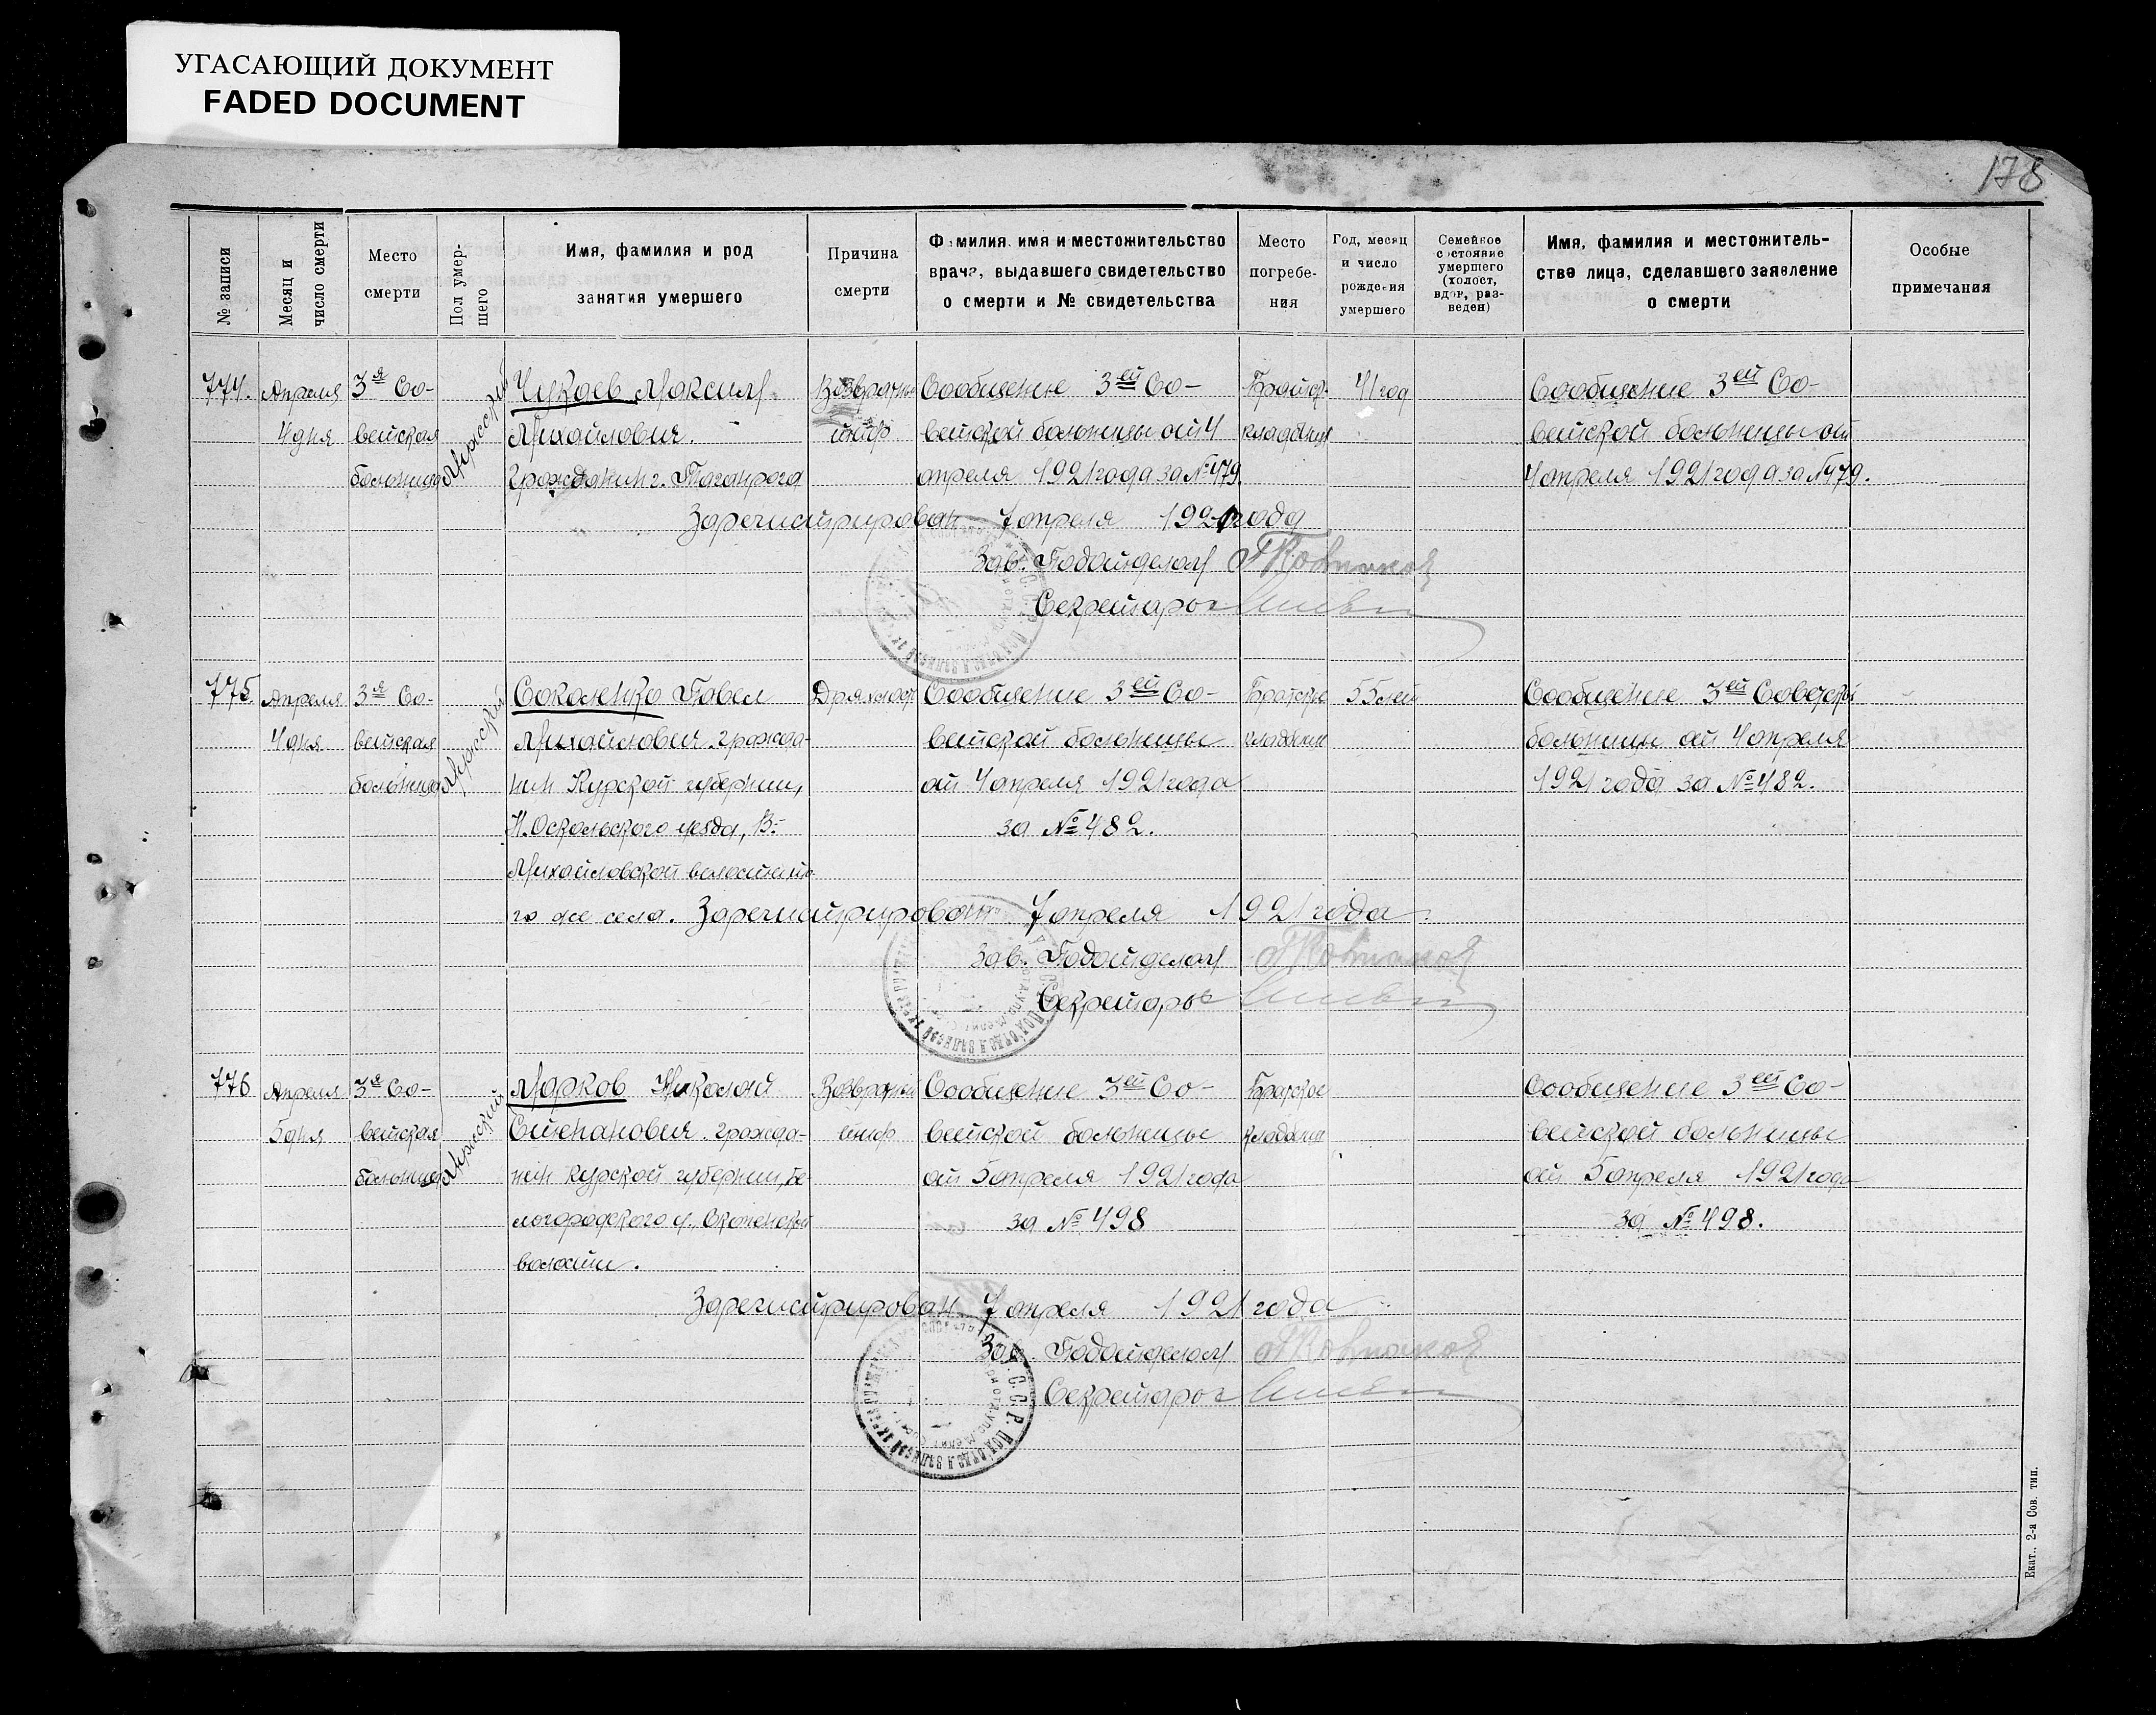 УГАСАЮЩИЙ ДОКУМЕНТ
FADED DOCUMENT
178
№ записи
Месяц и число смерти
Место смерти
Пол умершего
Имя, фамилия и род занятия умершего
Причина смерти
Фамилия, имя и местожительство врача, выдавшего свидетельство о смерти и № свидетельства
Место погребения
Год, месяц и число рождения умершего
Семейное состояние умершего (холост, вдов, разведен)
Имя, фамилия и местожительство лица, сделавшего заявление о смерти
Особые примечания
774. Апреля 3я Со- Мужской Чукаев Максим Возвратный Сообщение 3ей Со- Братск. 41 год Сообщение 3ей Со-
4 дня ветская Михайлович. тиф ветской больницы от 4 кладбище ветской больницы от
больница Гражданин г. Таганрога апреля 1921 года за № 479. 4 апреля 1921 года за № 479.
Зарегистрирован 7 апреля 1921 года
Зав. Подотделом
Секретарь
775. Апреля 3я Со- Мужской Соколенко Павел Дряхлость Сообщение 3ей Со- Братское 55 лет Сообщение 3ей Советской
4 дня ветская Михайлович. гражда- ветской больницы кладбище больницы от 4 апреля
больница нин Курской губернии, от 4 апреля 1921 года 1921 года за № 482.
Н. Оскольского уезда, В.- за № 482.
Михайловской волости то-
го же села. Зарегистрирован 7 апреля 1921 года.
Зав. Подотделом
Секретарь
776 Апреля 3я Со- Мужской Марков Николай Возвратный Сообщение 3ей Со- Братское Сообщение 3ей Со-
5 дня ветская Степанович. гражда- тиф ветской больницы кладбище ветской больницы
больница нин Курской губернии, Бе- от 5 апреля 1921 года от 5 апреля 1921 года
логородского у., за № 498 за № 498.
волости.
Зарегистрирован 7 апреля 1921 года
Зав. Подотделом
Секретарь
Екат., 2-я Сов. тип.